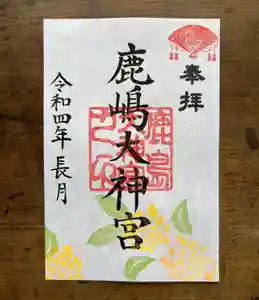 奉拝
鹿嶋大神宮
令和四年長月